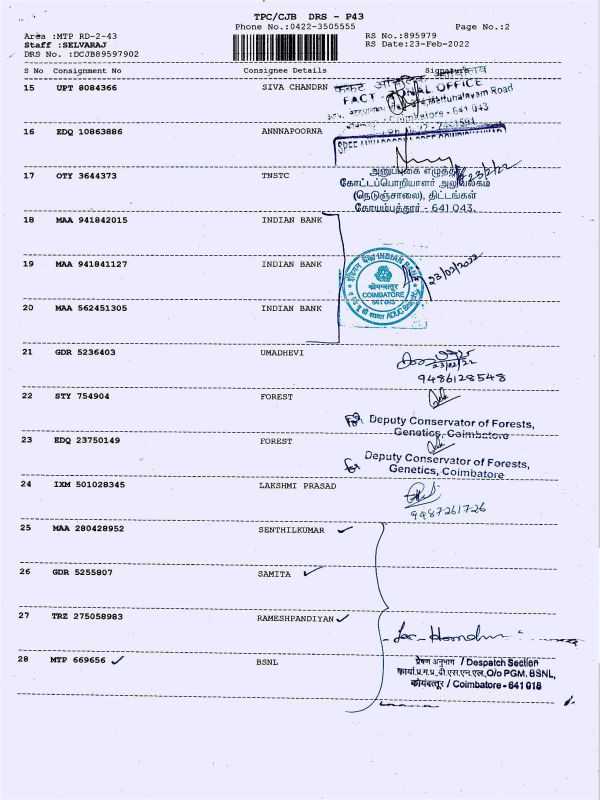 TPC/CJB DRS - P43
Phone No.:0422-3505555 Page No.:2
Area :MTP RD-2-43 RS No.:895979
Staff :SELVARAJ RS Date:23-Feb-2022
DRS No. :DCJB89597902
S No Consignment No Consignee Details Signature
15 UPT 8084366 SIVA CHANDRN
OFFICE
Mettupalayam Road
Coimbatore - 641 043
16 EDQ 10863886 ANNNAPOORNA
17 OTY 3644373 TNSTC
23/2/22
கோட்டப்பொறியாளர் அலுவலகம்
(நெடுஞ்சாலை), திட்டங்கள்
கோயம்புத்தூர் - 641 043.
18 MAA 941842015 INDIAN BANK
19 MAA 941841127 INDIAN BANK
INDIAN BANK
कोयम्बत्तूर
COIMBATORE
641 043
23/02/2022
20 MAA 562451305 INDIAN BANK
21 GDR 5236403 UMADHEVI
23/02/22
9486128548
22 STY 754904 FOREST
Deputy Conservator of Forests,
Genetics, Coimbatore
23 EDQ 23750149 FOREST
Deputy Conservator of Forests,
Genetics, Coimbatore
24 IXM 501028345 LAKSHMI PRASAD
9487261726
25 MAA 280428952 SENTHILKUMAR
26 GDR 5255807 SAMITA
27 TRZ 275058983 RAMESHPANDIYAN
28 MTP 669656 BSNL
प्रेषण अनुभाग / Despatch Section
कार्या.प्र.म.प्र, बी.एस.एन.एल,O/o PGM, BSNL,
कोयंबत्तूर / Coimbatore - 641 018